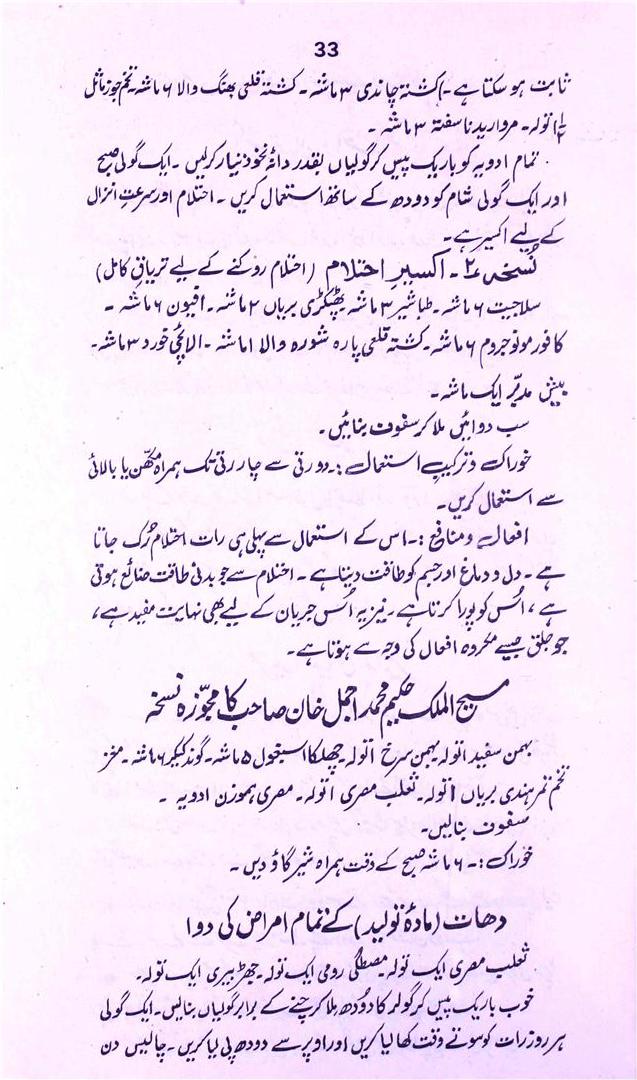 33
ثابت ہو سکتا ہے۔ کشتہ چاندی ۳ ماشہ۔ کشتہ قلعی بھنگ والا ۶ ماشہ۔ تخم جوز ماثل
تولہ۔ مروارید ناسفتہ ۳ ماشہ۔
تمام ادویہ کو باریک پیس کر گولیاں بقدر دانۂ نخود تیار کرلیں۔ ایک گولی صبح
اور ایک گولی شام کو دودھ کے ساتھ استعمال کریں۔ احتلام اور سرعتِ انزال
کے لیے اکسیر ہے۔
نسخہ ۲۔ اکسیرِ احتلام (احتلام روکنے کے لیے تریاقِ کامل)
سلاجیت ۶ ماشہ۔ طباشیر ۳ ماشہ۔ پھٹکڑی بریاں ۲ ماشہ۔ افیون ۶ ماشہ۔
کافور مونوبروم ۶ ماشہ۔ کشتہ قلعی پارہ شورہ والا ۱ ماشہ۔ الائچی خورد ۳ ماشہ۔
بیش مدبّر ایک ماشہ۔
سب دوائیں ملا کر سفوف بنائیں۔
خوراک و ترکیبِ استعمال :۔ دو رتی سے چار رتی تک ہمراہ مکھّن یا بالائی
سے استعمال کریں۔
افعال و منافع :۔ اس کے استعمال سے پہلی ہی رات احتلام رُک جاتا
ہے۔ دل و دماغ اور جسم کو طاقت دیتا ہے۔ احتلام سے جو بدنی طاقت ضائع ہوتی
ہے، اُس کو پورا کرتا ہے۔ نیز یہ اُس جریان کے لیے بھی نہایت مفید ہے،
جو جلق جیسے مکروہ افعال کی وجہ سے ہوتا ہے۔
مسیح الملک حکیم محمد اجمل خان صاحب کا مجوّزہ نسخہ
بہمن سفید ۱ تولہ۔ بہمن سرخ ۱ تولہ۔ چھلکا اسپغول ۵ ماشہ۔ گوند کیکر ۶ ماشہ۔ مغز
تخم تمر ہندی بریاں ۱ تولہ۔ ثعلب مصری ۱ تولہ۔ مصری ہموزن ادویہ۔
سفوف بنالیں۔
خوراک :۔ ۶ ماشہ صبح کے وقت ہمراہ شیر گاؤ دیں۔
دھات (مادۂ تولید) کے تمام امراض کی دوا
ثعلب مصری ایک تولہ۔ مصطگی رومی ایک تولہ۔ جھڑ بیری ایک تولہ۔
خوب باریک پیس کر گولر کا دُودھ ملا کر چنے کے برابر گولیاں بنالیں۔ ایک گولی
ہر روز رات کو سوتے وقت کھا لیا کریں اور اوپر سے دودھ پی لیا کریں۔ چالیس دن